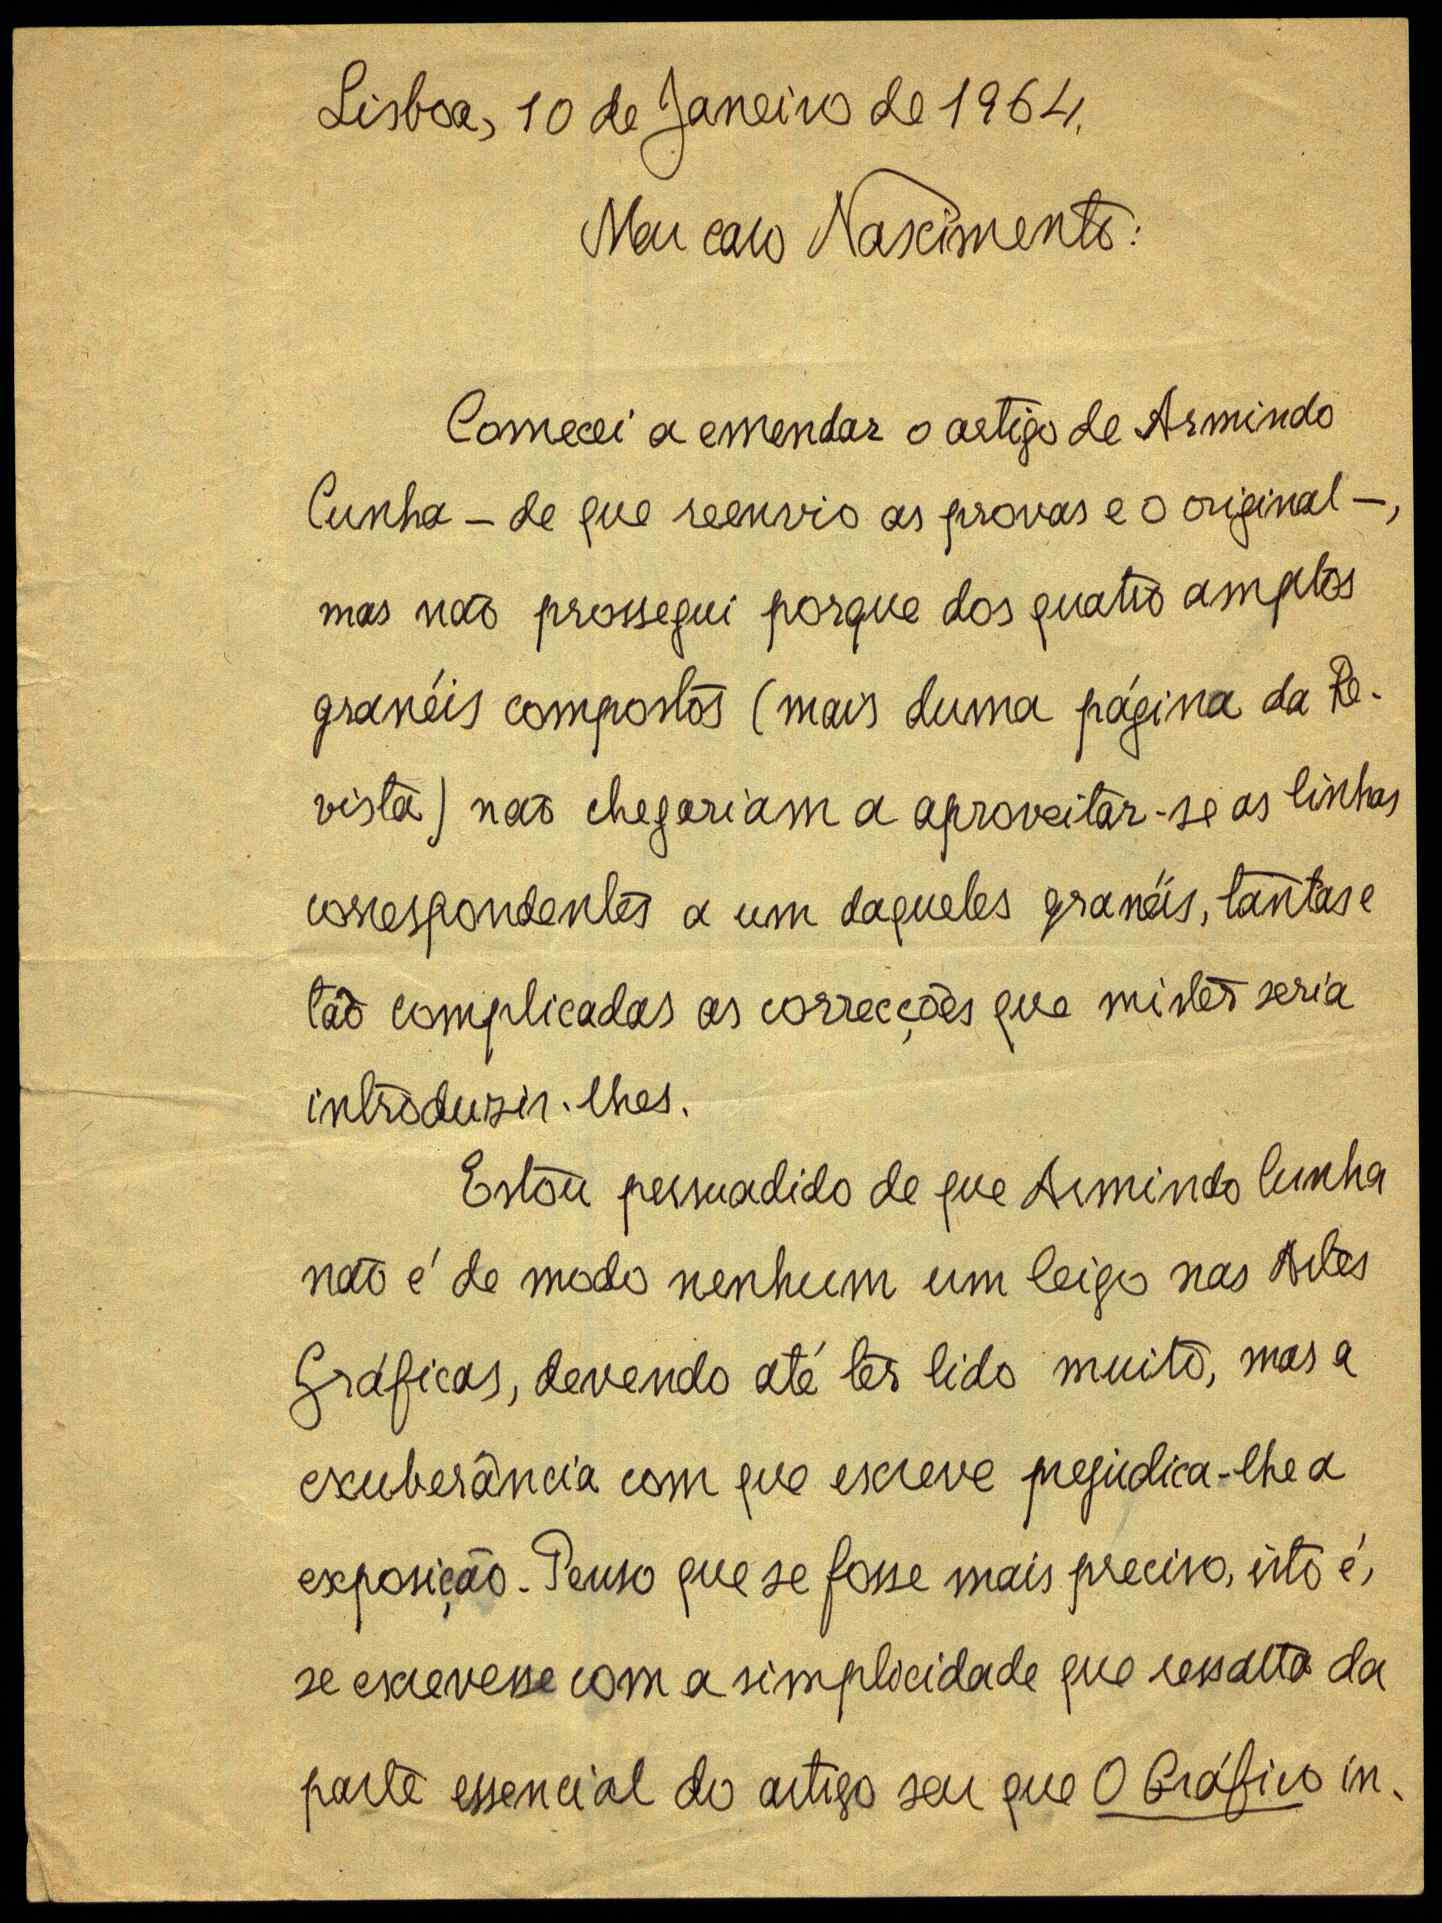 Lisboa, 10 de Janeiro de 1964.
Meu caro Nascimento:
Comecei a emendar o artigo de Armindo
Cunha – de que reenvio as provas e o original –,
mas não prossegui porque dos quatro amplos
granéis compostos (mais duma página da Re-
vista) não chegariam a aproveitar-se as linhas
correspondentes a um daqueles granéis, tantas e
tão complicadas as correcções que mister seria
introduzir-lhes.
Estou persuadido de que Armindo Cunha
não é de modo nenhum um leigo nas Artes
Gráficas, devendo até ter lido muito, mas a
exuberância com que escreve prejudica-lhe a
exposição. Penso que se fosse mais preciso, isto é,
se escrevesse com a simplicidade que ressalta da
parte essencial do artigo seu que O Gráfico in-